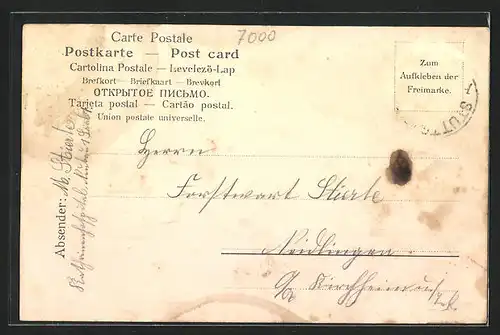 Carte Postale
7000
Postkarte — Post card
Cartolina Postale — Levelező-Lap
Brefkort — Briefkaart — Brevkort
ОТКРЫТОЕ ПИСЬМО.
Tarjeta postal — Cartão postal.
Union postale universelle.
Zum
Aufkleben der
Freimarke.
STUTT
Absender: M. Stierle
Herrn
Forstwart Stierle
Neidlingen
Kirchheim u/Teck